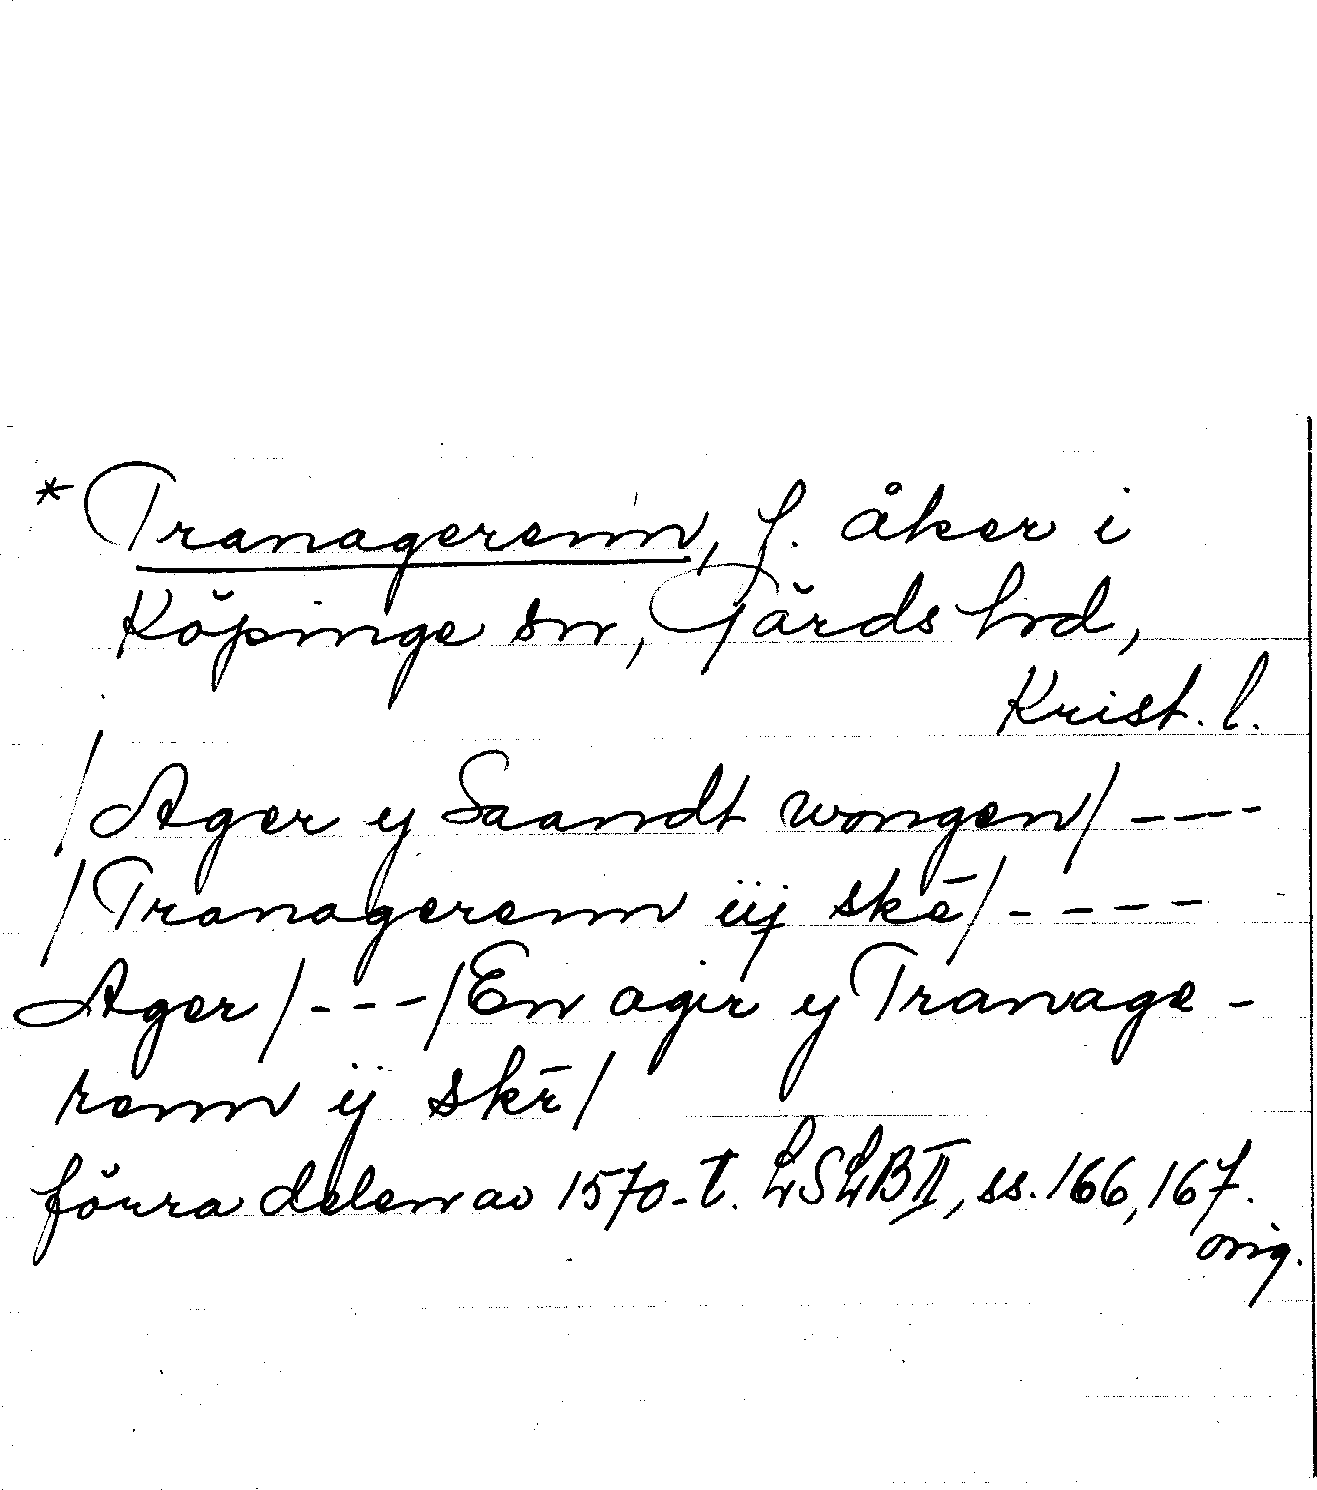 * Tranagerenn, f. åker i
Köpinge sn, Gärds hd,
Krist. l.
/Ager y Saandt wongen/ ---
/Tranagerenn iij skē/ ----
Ager/---/En agir y Tranage-
renn ij skr̄/
förra delen av 1570-t. LSLB II, ss. 166, 167.
orig.